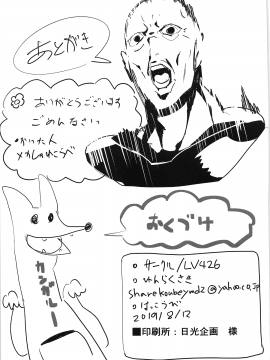 あとがき
ありがとうございます
ごめんなさい
・かいた人
メカしゃわこうべ
おくづけ
カンガルー
○ サークル/LV426
○ れんらくさき
sharekoubeymd2@yahoo.co.jp
○ はっこうび
2019/8/12
■印刷所:日光企画 様